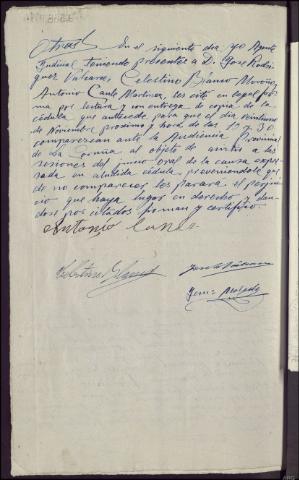 Otras/ En el siguiente dia yo Agente
Judicial teniendo presentes a D. Jose Rodri
guez Valcarce, Celestino Blanco Moroño,
Antonio Canle Martinez, les cité en legal for
ma por lectura y con entrega de copia de la
cédula que antecede para que el dia veintiuno
de Noviembre proximo y hora de las 10 y 30
comparezcan ante la Audiencia Provincial
de La Coruña al objeto de asistir a las
sesiones del juicio oral de la causa expre
sada en aludida cédula previniendoles que
de no comparecer les parará el perjui
cio que haya lugar en derecho y dan
dose por citados firman y certifico.
Antonio Canle
Celestino Blanco